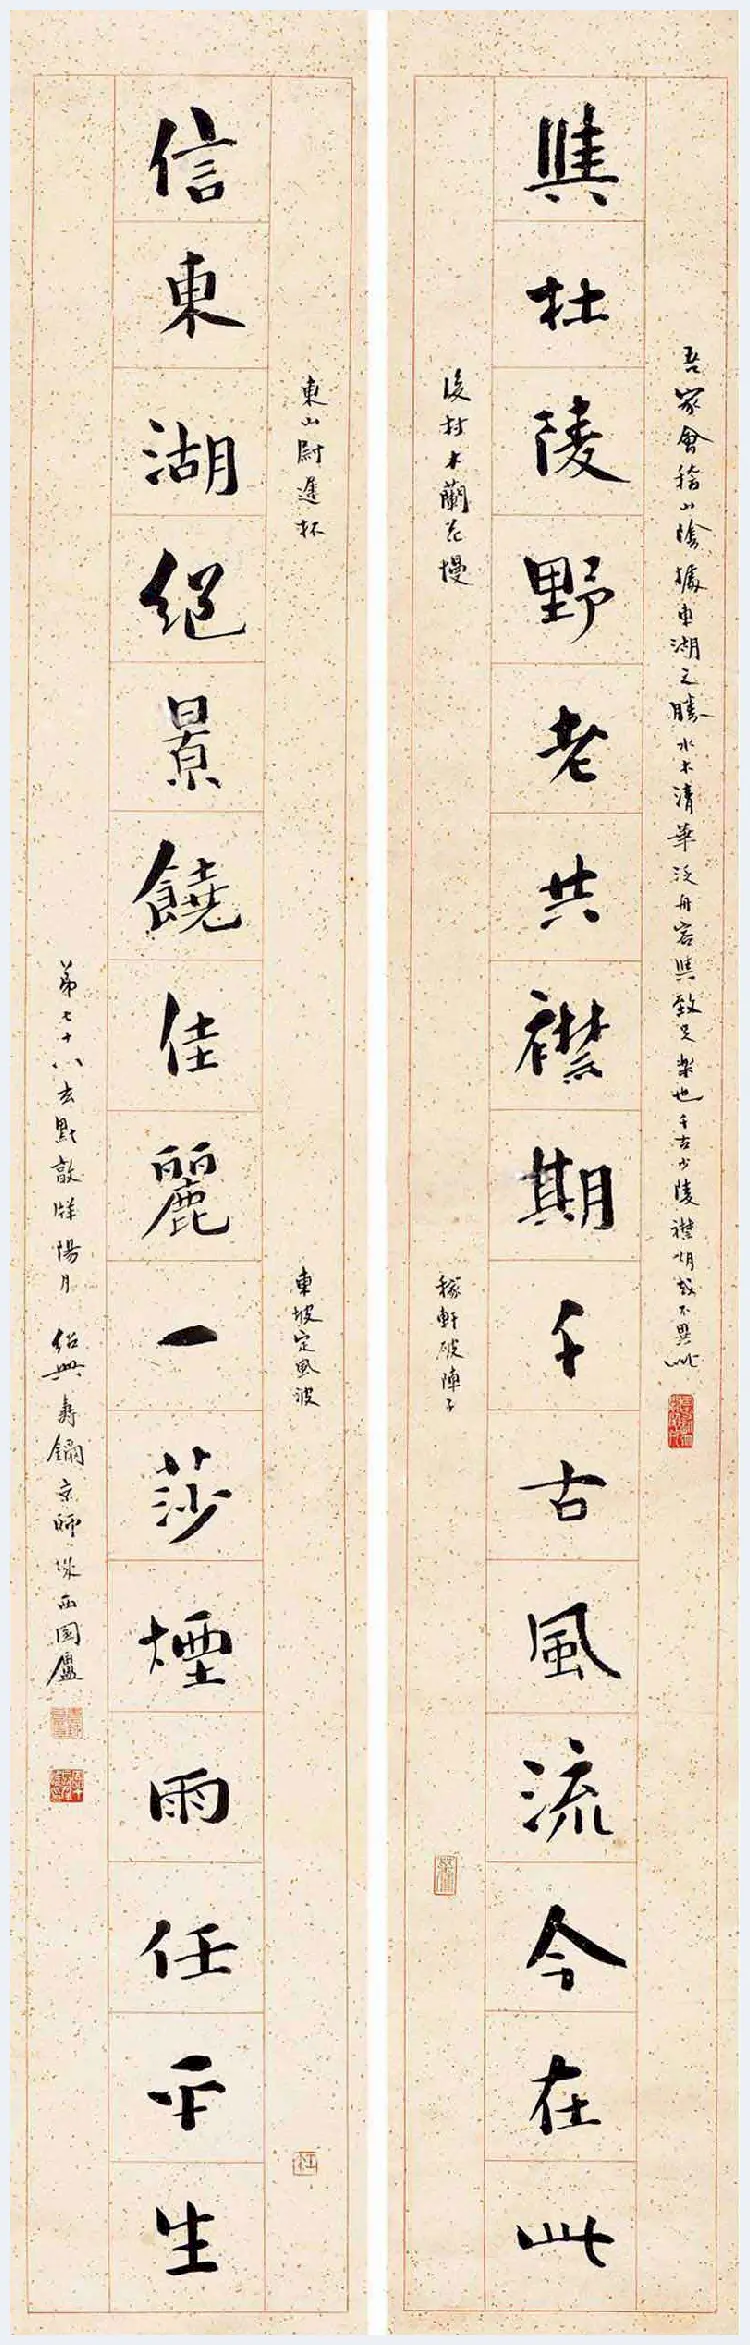 吾家會稽山陰據東湖之勝水木清華泛舟容與致足樂也千古少陵襟情或不異此
與杜陵野老共襟期千古風流今在此
後村木蘭花慢
稼軒破陣子
東山尉遲杯
東坡定風波
信東湖絕景饒佳麗一莎煙雨任平生
第七十八玄黓敦牂陽月 紹興壽鑈京師西園廬